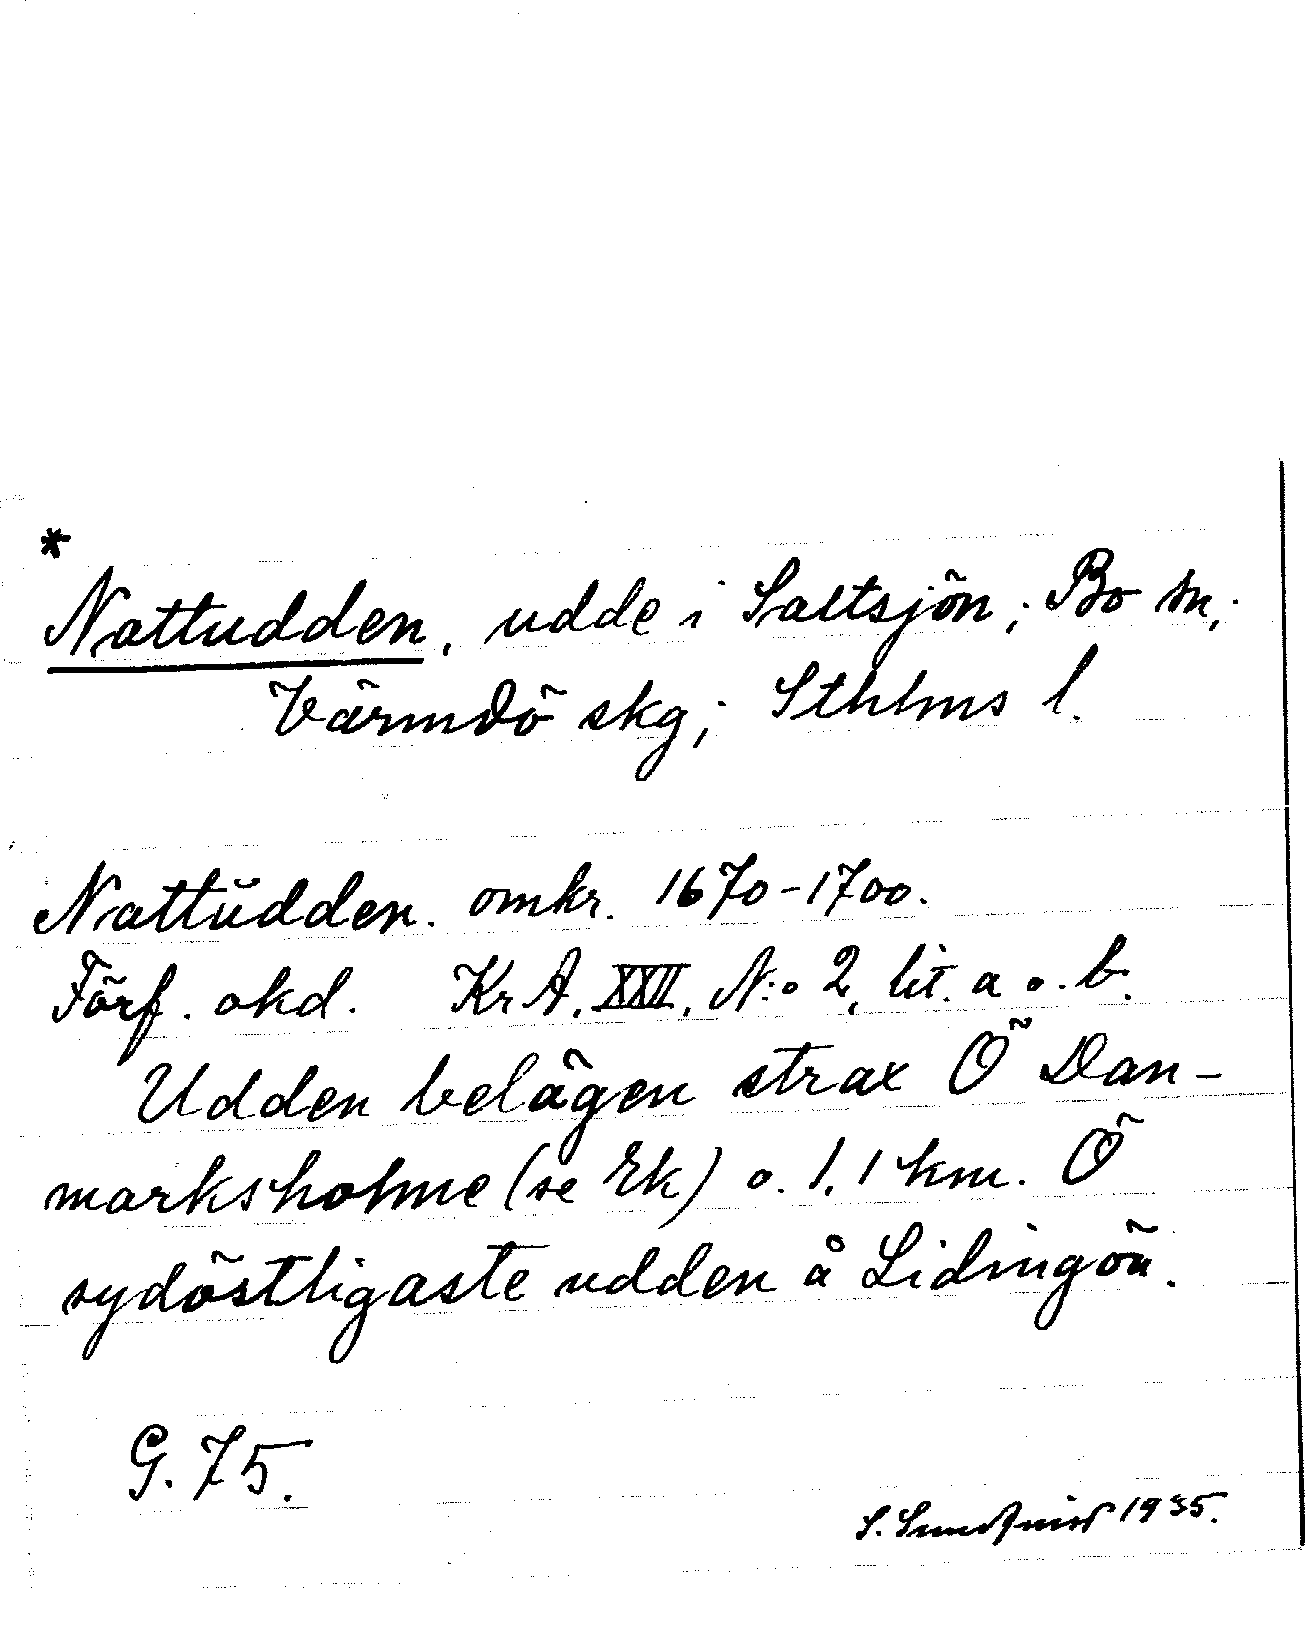 *
Nattudden, udde i Saltsjön; Bo sn;
Värmdö skg; Sthlms l.
Nattŭdden. omkr. 1670-1700.
Förf. okd. KrA. XXII, N:o 2, lit. a o. b.
Udden belägen strax Ö Dan-
marksholme (se Ek) o. 1,1 km. Ö
sydöstligaste udden å Lidingön.
G. 75.
S. 1935.